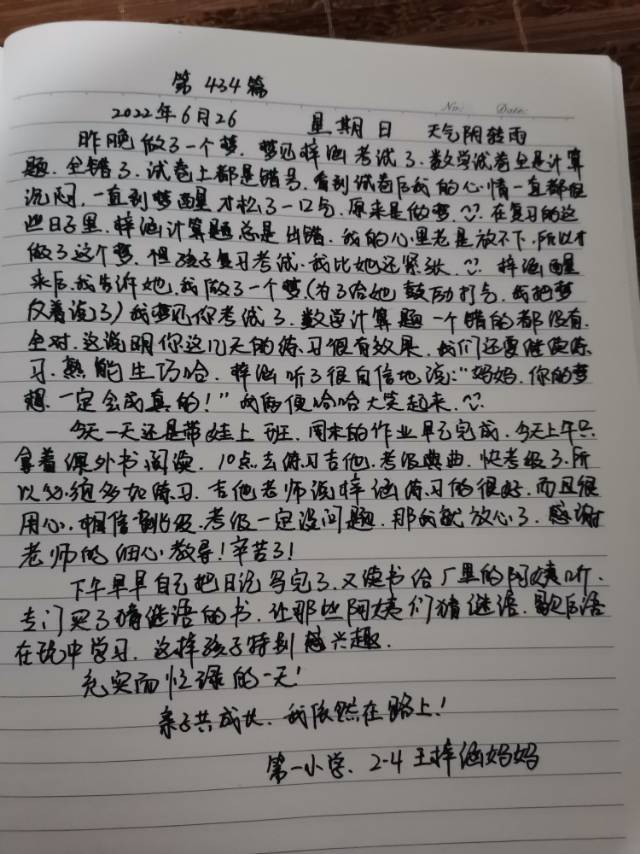 第434篇
No. Date.
2022年6月26 星期日 天气阴转雨
昨晚做了一个梦.梦见梓涵考试了.数学试卷全是计算
题.全错了.试卷上都是错号,看到试卷后我的心情一直都很
沉闷,一直到梦醒才松了一口气,原来是做梦.在复习的这
些日子里.梓涵计算题总是出错.我的心里老是放不下.所以才
做了这个梦.但孩子复习考试.我比她还紧张.梓涵醒
来后.我告诉她,我做了一个梦(为了给她鼓励打气.我把梦
反着说了)我梦见你考试了.数学计算题一个错的都没有.
全对.这说明你这几天的练习很有效果.我们还要继续练
习.熟能生巧哈.梓涵听了很自信地说:“妈妈.你的梦
想.一定会成真的!”我俩便哈哈大笑起来.
今天一天还是带娃上班.周末的作业早已完成.今天上午只
拿着课外书阅读.10点去练习吉他.考级典曲.快考级了.所
以必须多加练习.吉他老师说梓涵练习的很好.而且很
用心.相信到时级.考级一定没问题.那我就放心了.感谢
老师的细心教导!辛苦了!
下午早早自己把日记写完了.又读书给厂里的阿姨听.
专门买了猜谜语的书.让那些阿姨们猜谜语.歇后语
在玩中学习.这样孩子特别感兴趣.
充实而忙碌的一天!
亲子共成长.我依然在路上!
第一小学、2-4王梓涵妈妈